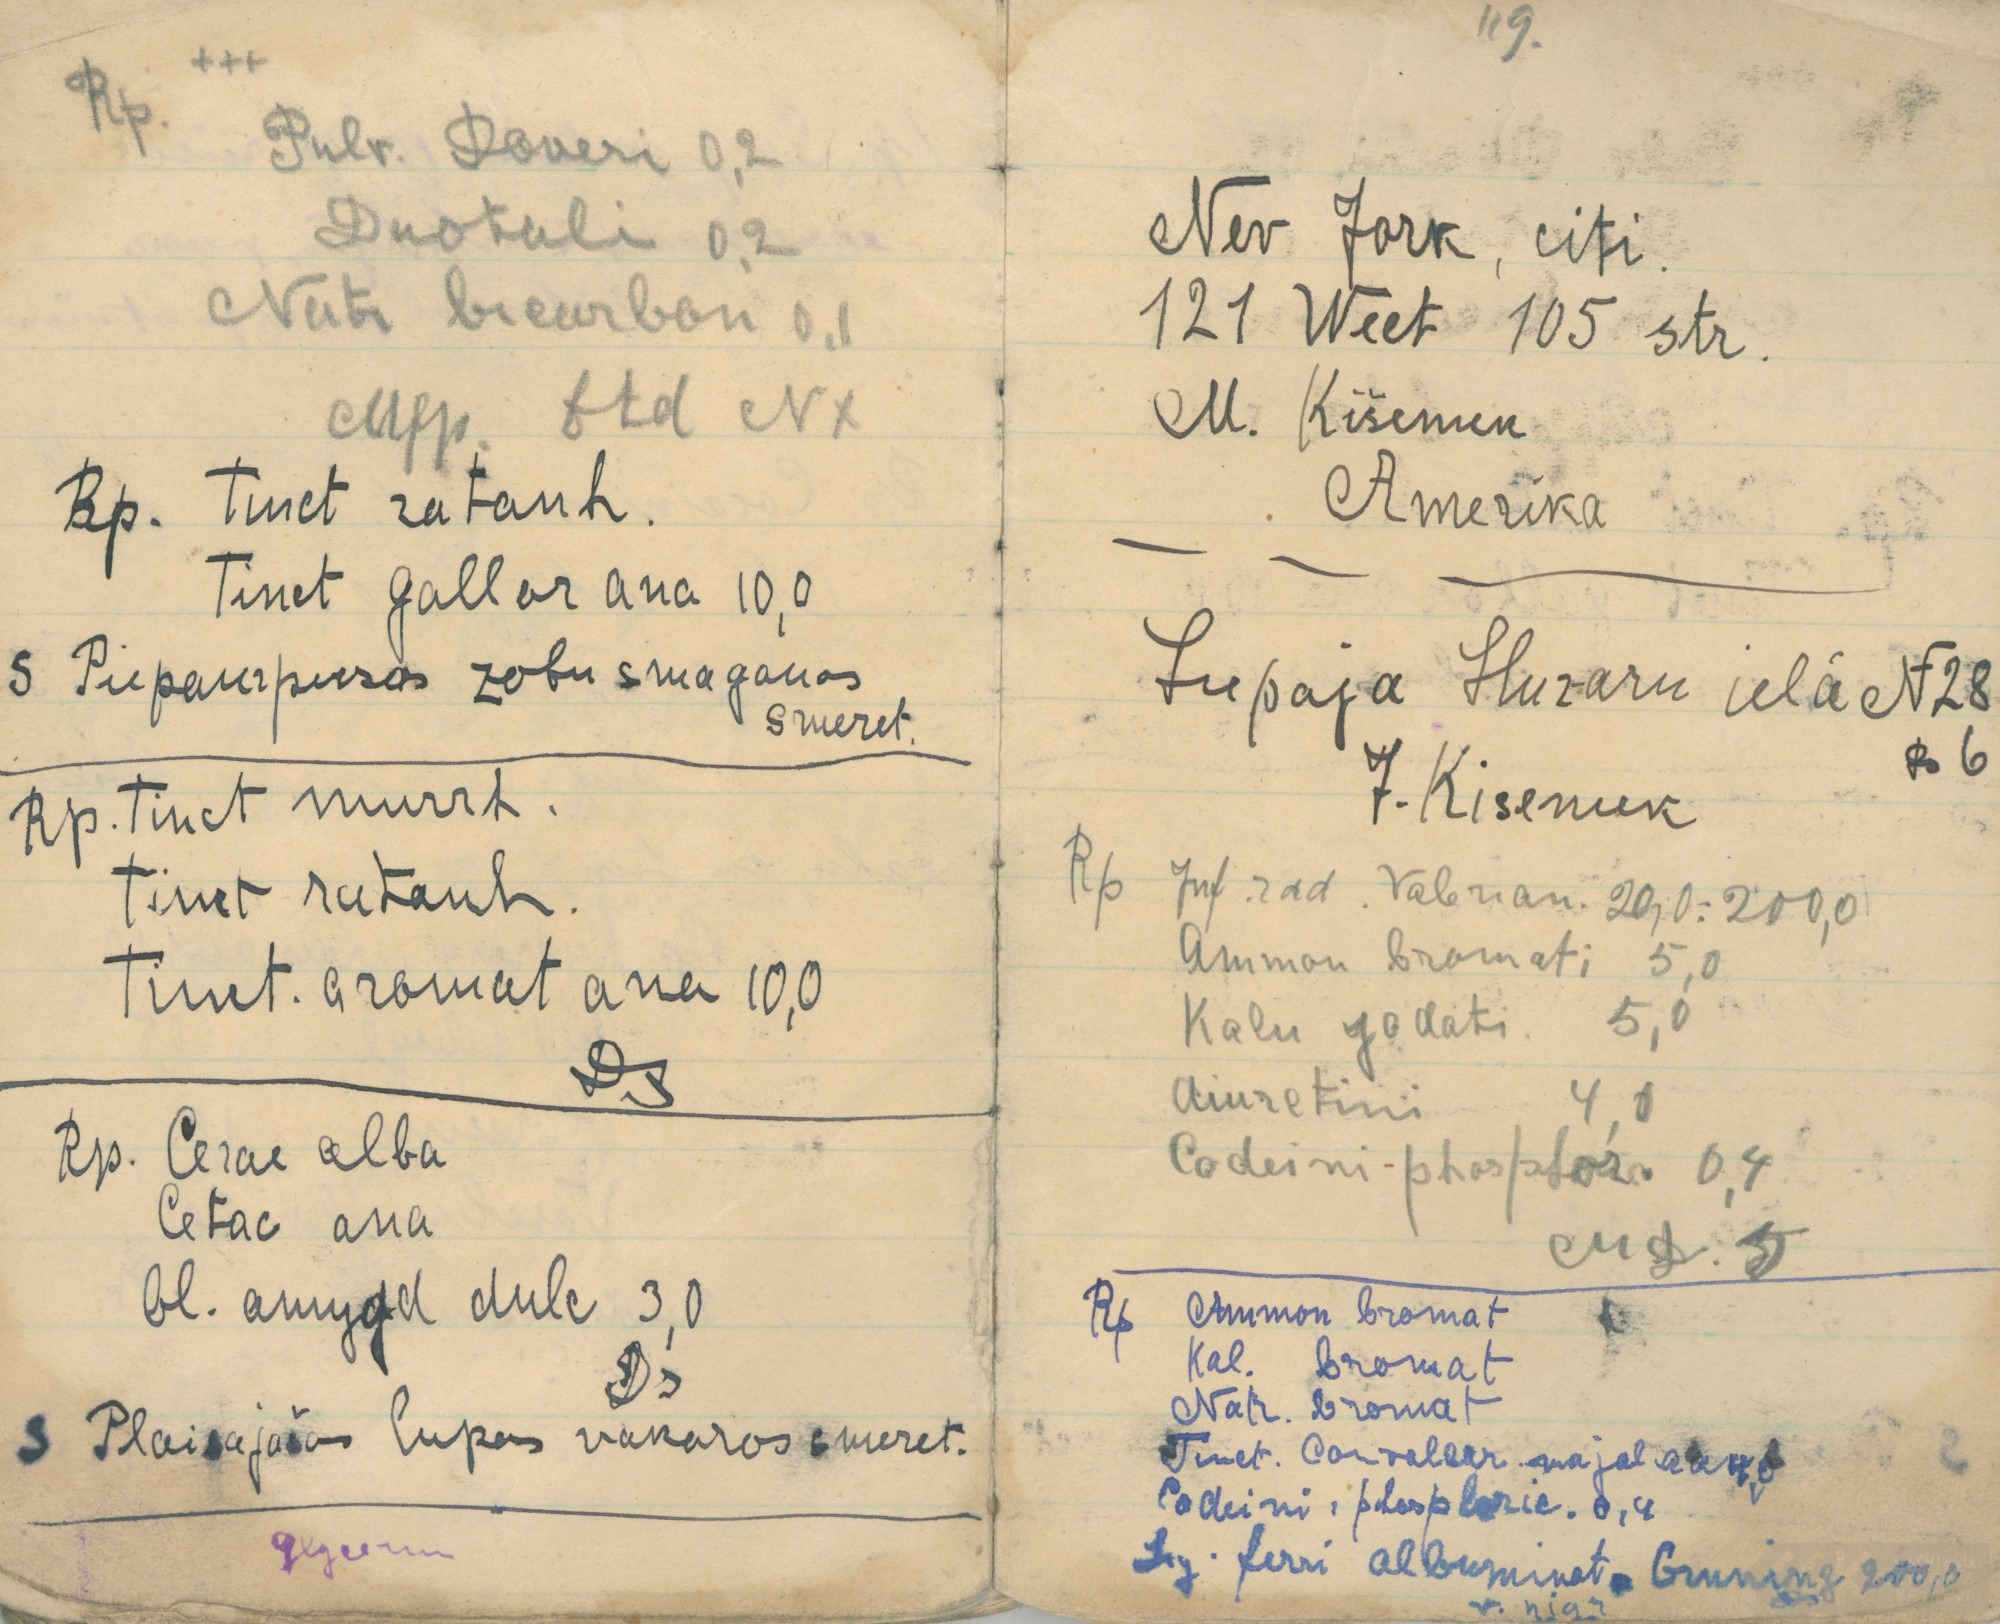 Rp. +++
Pulv. Doveri 0,2
Duotali 0,2
Natr bicarbon 0,1
Mfp. td N X
Rp. Tinct ratanh.
Tinct gallar ana 10,0
S Piepampušas zobu smaganas
smeret.
Rp. Tinct murrh.
Tinct ratanh.
Tinct. aromat ana 10,0
DS
Rp. Cerae alba
Cetac ana
Ol. amygd dulc 3,0
Ds
S Plaisajašas lupas vakaros smeret.
glycerin
119.
Nev Jork, citi.
121 Weet 105 str.
M. Kišemuk
Amerika
Liepaja Huzaru ielā N 28
6
J. Kisemuk
Rp Inf. rad. Valerian. 20,0:200,0
Ammon bromati 5,0
Kalii jodati. 5,0
diuretini 4,0
Codeini-phosphor. 0,4
MD. S
Rp Ammon bromat
Kal. bromat
Natr. bromat
Tinct. Convalar majal aa 4,0
Codeini, phosphoric. 0,4
Liq. ferri albuminat. Gruning 200,0